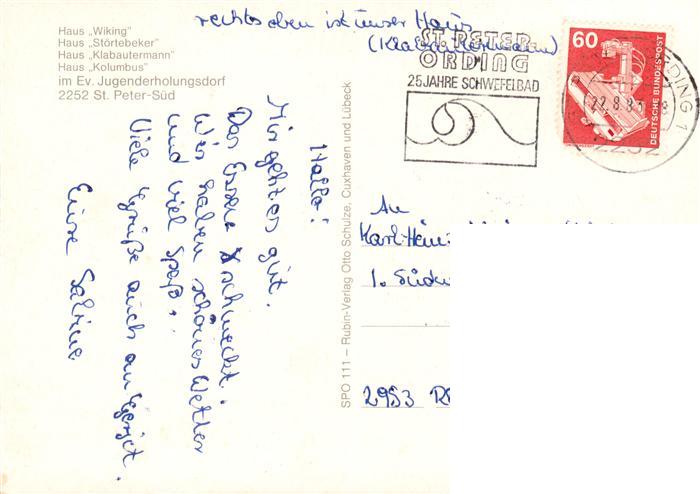 rechts oben ist unser Haus
(Klabautermann)
Haus „Wiking"
Haus „Störtebeker"
Haus „Klabautermann"
Haus „Kolumbus"
im Ev. Jugenderholungsdorf
2252 St. Peter-Süd
ST. PETER-
ORDING
25 JAHRE SCHWEFELBAD
60
DEUTSCHE BUNDESPOST
Hallo!
Mir geht es gut.
Das Essen schmeckt.
Wir haben schönes Wetter
und viel Spaß.
Viele Grüße auch an Gerjet.
Eure Sabine
SPO 111 – Rubin-Verlag Otto Schulze, Cuxhaven und Lübeck
An
Karl-Hein
1. Süd
2953